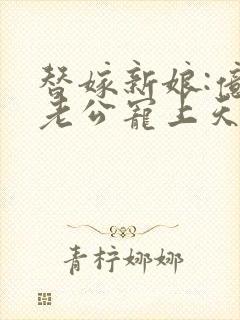 替嫁新娘:
老公宠上天
青柠娜娜